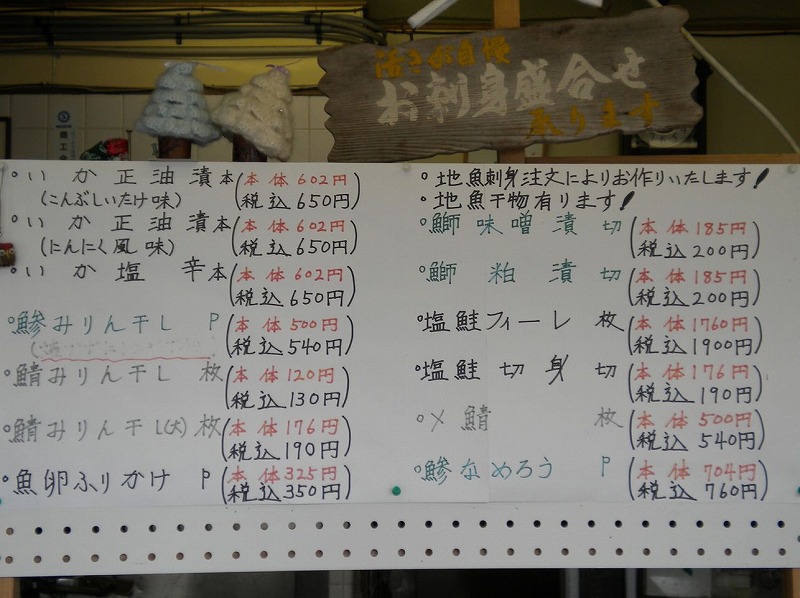 活きが自慢
お刺身盛合せ
承ります
商工会
°いか正油漬本(本体602円
(こんぶしいたけ味)(税込650円)
°いか正油漬本(本体602円
(にんにく風味)(税込650円)
°いか塩辛本(本体602円
(税込650円)
°鯵みりん干し P(本体500円
(税込540円)
°鯖みりん干し 枚(本体120円
(税込130円)
°鯖みりん干し(大)枚(本体176円
(税込190円)
°魚卵ふりかけ P(本体325円
(税込350円)
°地魚刺身注文によりお作りいたします!
°地魚干物有ります!
°鰤味噌漬切(本体185円
(税込200円)
°鰤粕漬切(本体185円
(税込200円)
°塩鮭フィーレ 枚(本体1760円
(税込1900円)
°塩鮭切身 切(本体176円
(税込190円)
°〆鯖 枚(本体500円
(税込540円)
°鯵なめろう P(本体704円
(税込760円)